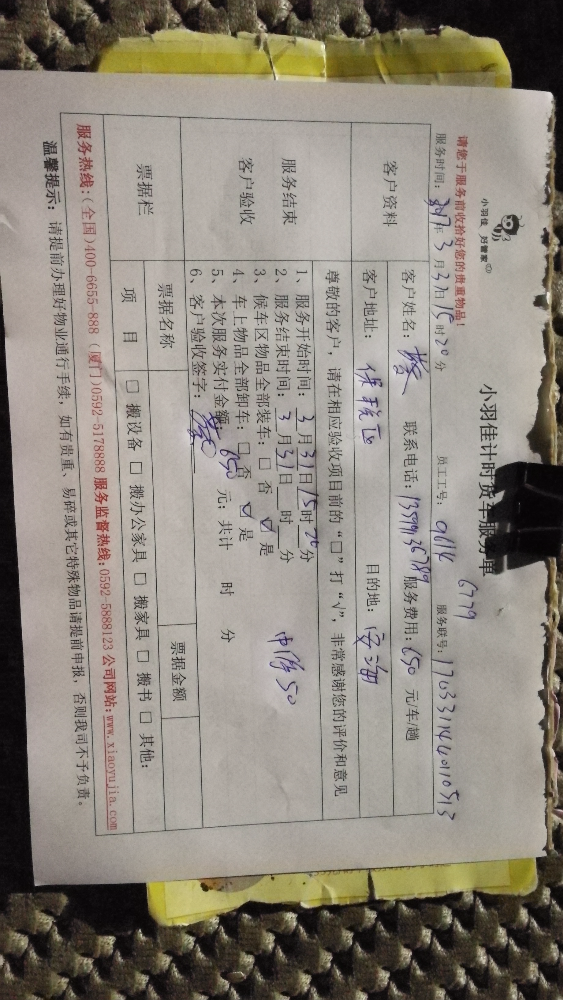 小羽佳 好管家
小羽佳计时货车服务单
6779
请您于服务前收拾好您的贵重物品!
服务时间: 2017年 3月 31日 15时 20分 员工工号: 9614 服务联号:
客户资料
客户姓名: 联系电话: 服务费用: 650 元/车/趟
客户地址: 保税区 目的地:
尊敬的客户,请在相应验收项目前的“□”打“√”,非常感谢您的评价和意见
服务结束
客户验收
1、服务开始时间: 3月31日15时20分
2、服务结束时间: 3月31日 时 分
3、候车区物品全部装车: □ 否 ☑ 是
4、车上物品全部卸车: □ 否 ☑ 是
5、本次服务实付金额: 650 元; 共计 时 分
6、客户验收签字:
50
票据栏
票据名称 票据金额
项 目 □ 搬设备 □ 搬办公家具 □ 搬家具 □ 搬书 □ 其他:
服务热线:(全国)400-6655-888 (厦门)0592-5178888 服务监督热线:0592-5888123 公司网站:www.xiaoyujia.com
温馨提示: 请提前办理好物业通行手续, 如有贵重、易碎或其它特殊物品请提前申报, 否则我司不予负责。